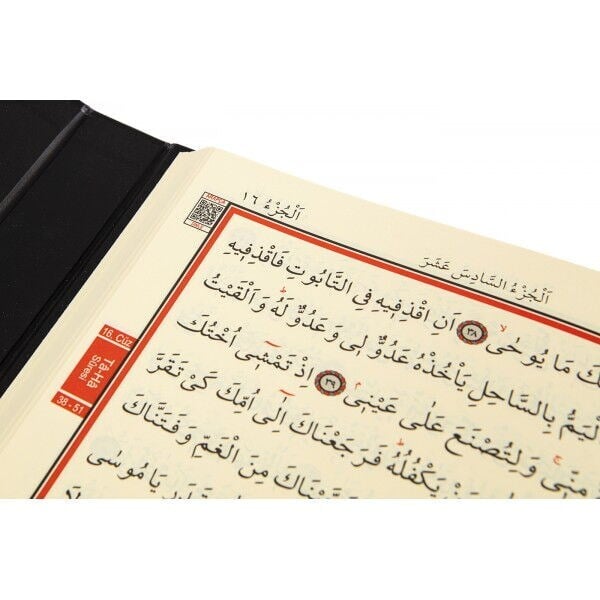 اَلْجُزْءُ ١٦
اَلْجُزْءُ السَّادِسَ عَشَرَ
16. Cüz
Tâ-Hâ
Sûresi
38 - 51
مَا يُوحٰىۙ ﴿٣٨﴾ اَنِ اقْذِفِيهِ فِي التَّابُوتِ فَاقْذِفِيهِ
الْيَمُّ بِالسَّاحِلِ يَأْخُذْهُ عَدُوٌّ لِي وَعَدُوٌّ لَهُۜ وَاَلْقَيْتُ
مِنِّيۚ وَلِتُصْنَعَ عَلٰى عَيْنِيۢ ﴿٣٩﴾ اِذْ تَمْشِٓي اُخْتُكَ
مَنْ يَكْفُلُهُۜ فَرَجَعْنَاكَ اِلٰٓى اُمِّكَ كَيْ تَقَرَّ
فَنَجَّيْنَاكَ مِنَ الْغَمِّ وَفَتَنَّاكَ
يَا مُوسٰى